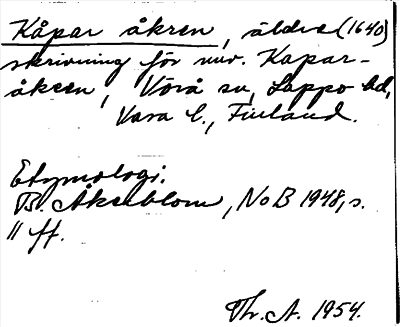 Kåpar åkren, äldre (1640)
skrivning för nuv. Kapar-
åkern, Vörå sn, Lappo hd,
Vasa l., Finland.
Etymologi.
B. Åkerblom, NoB 1948, s.
11 ff.
Thr. A. 1954.